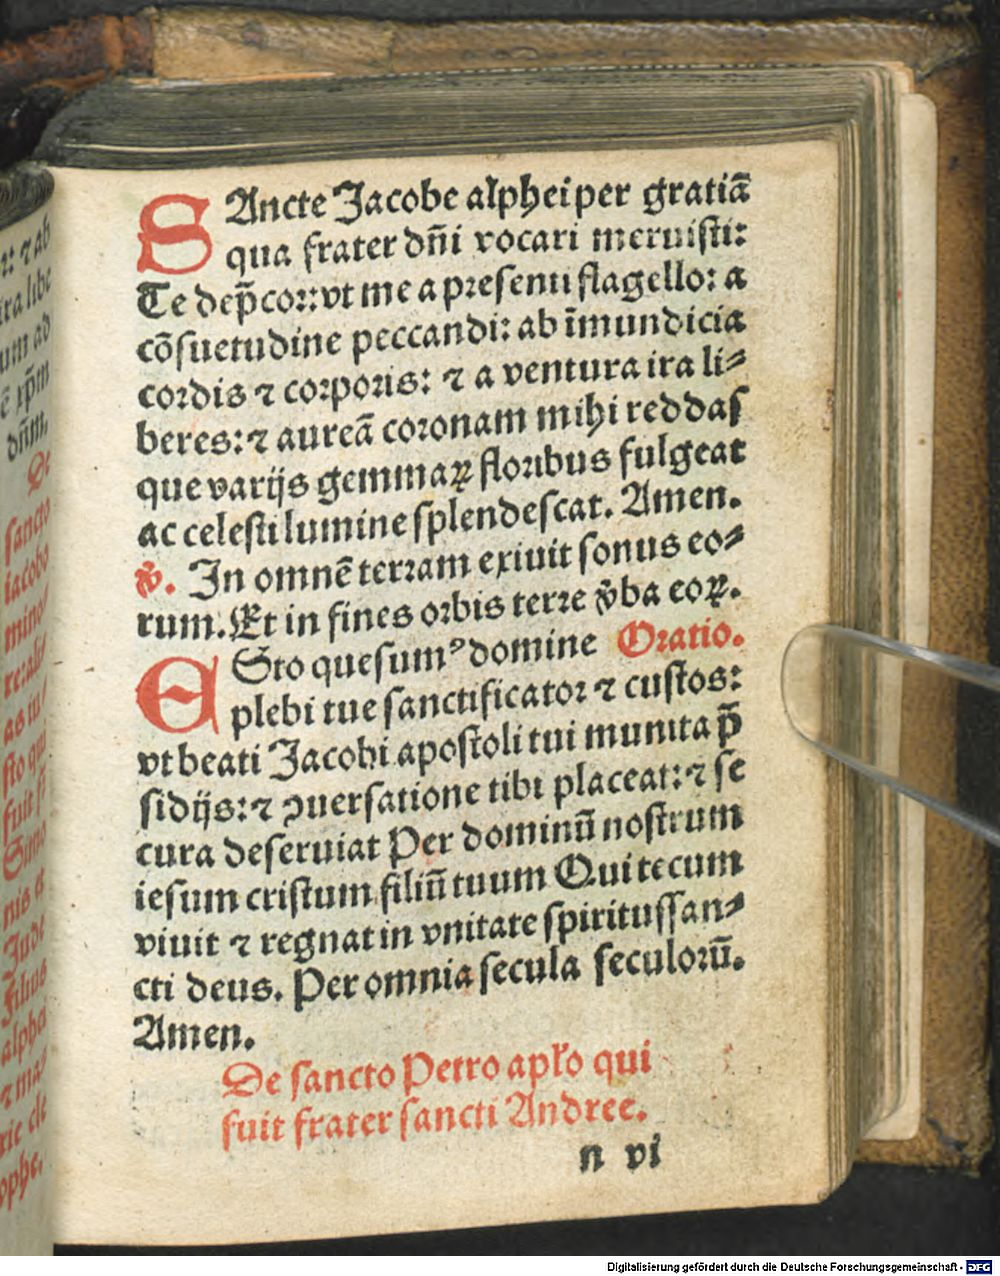 r: ⁊ ab
ira libe
um ad
ē xp̄m
dn̄m.
De
sancto
iacobo
mino/
re: ali/
as iu/
sto qui
fuit fr̄
Simo
nis et
Jude
filius
alphei
⁊ ma/
rie cle
ophe.
SAncte Jacobe alphei per gratiā
qua frater dn̄i vocari meruisti:
Te dep̄cor: vt me a presenti flagello: a
cōsuetudine peccandi: ab īmundicia
cordis ⁊ corporis: ⁊ a ventura ira li⸗
beres: ⁊ aureā coronam mihi reddas
que varijs gemmaꝝ floribus fulgeat
ac celesti lumine splendescat. Amen.
℣. In omnē terram exiuit sonus eo⸗
rum. Et in fines orbis terre v̄ba eoꝝ.
ESto quesumꝰ domine Oratio.
plebi tue sanctificator ⁊ custos:
vt beati Jacobi apostoli tui munita p̄
sidijs: ⁊ ꝯuersatione tibi placeat: ⁊ se
cura deseruiat Per dominū nostrum
iesum cristum filiū tuum Qui tecum
viuit ⁊ regnat in vnitate spiritussan⸗
cti deus. Per omnia secula seculorū.
Amen.
De sancto Petro apło qui
fuit frater sancti Andree.
n vi
Digitalisierung gefördert durch die Deutsche Forschungsgemeinschaft - DFG